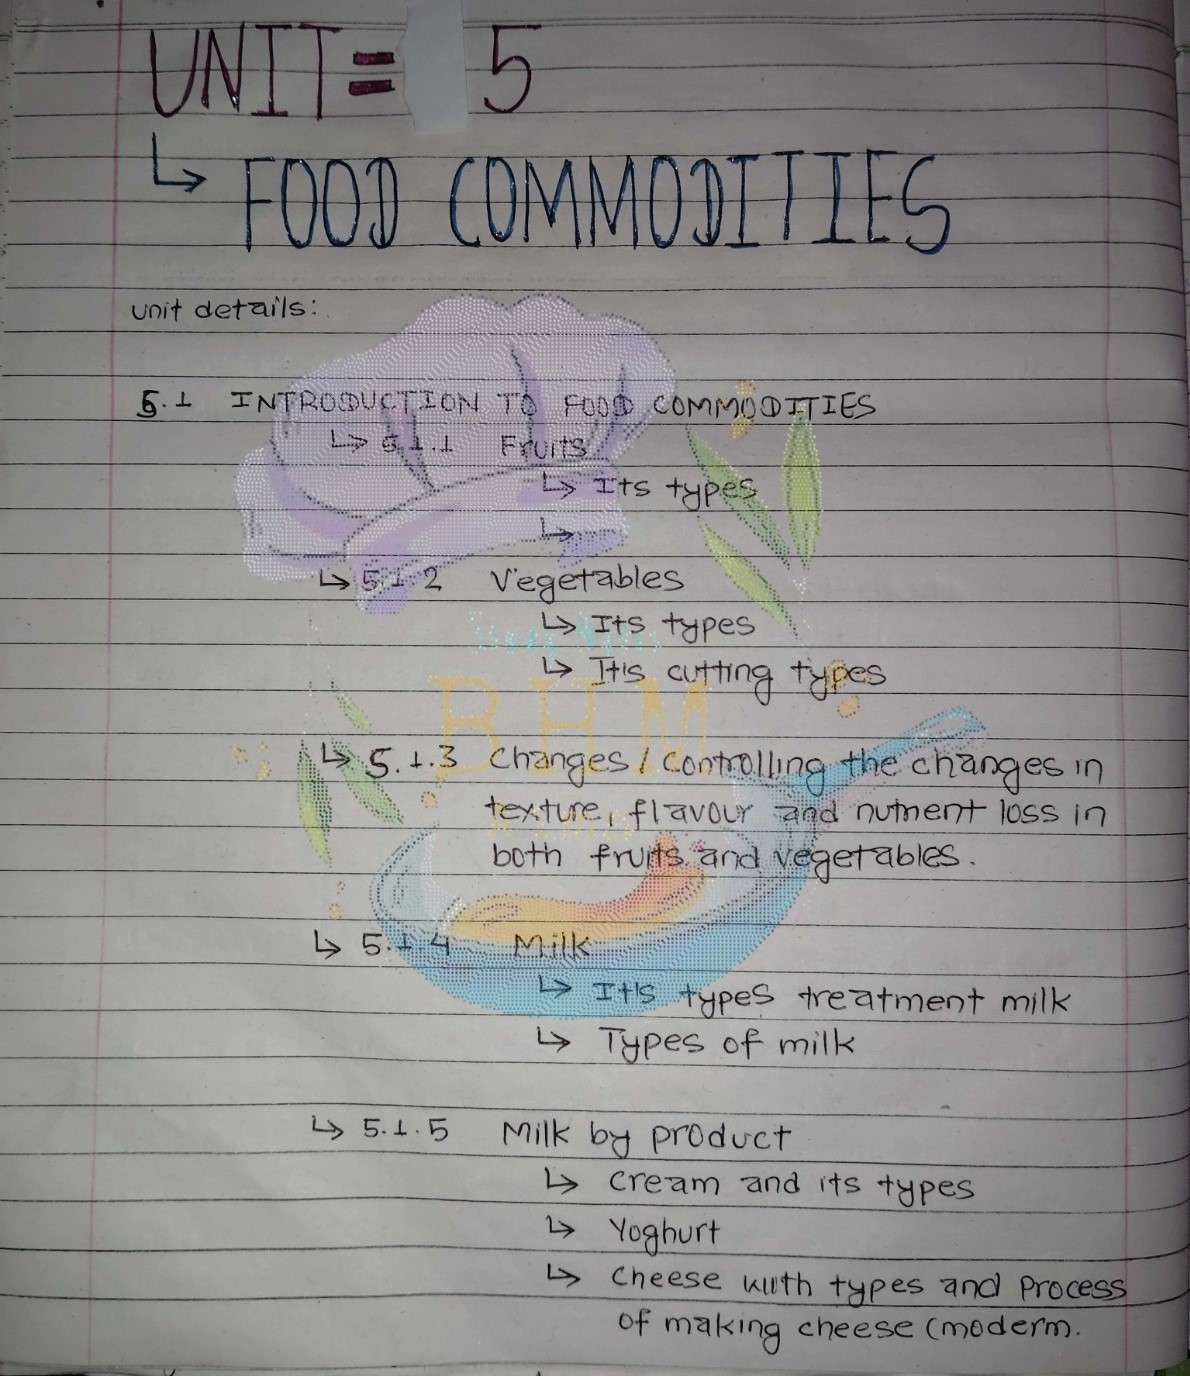 UNIT= 5
↳ FOOD COMMODITIES
unit details:
5.1 INTRODUCTION TO FOOD COMMODITIES
↳ 5.1.1 Fruits
↳ Its types
↳
↳ 5.1.2 Vegetables
↳ Its types
↳ It's cutting types
BHM
↳ 5.1.3 Changes / controlling the changes in
texture, flavour and nutrient loss in
both fruits and vegetables.
↳ 5.1.4 Milk
↳ It's types treatment milk
↳ Types of milk
↳ 5.1.5 Milk by product
↳ cream and its types
↳ Yoghurt
↳ cheese with types and process
of making cheese (moderm.